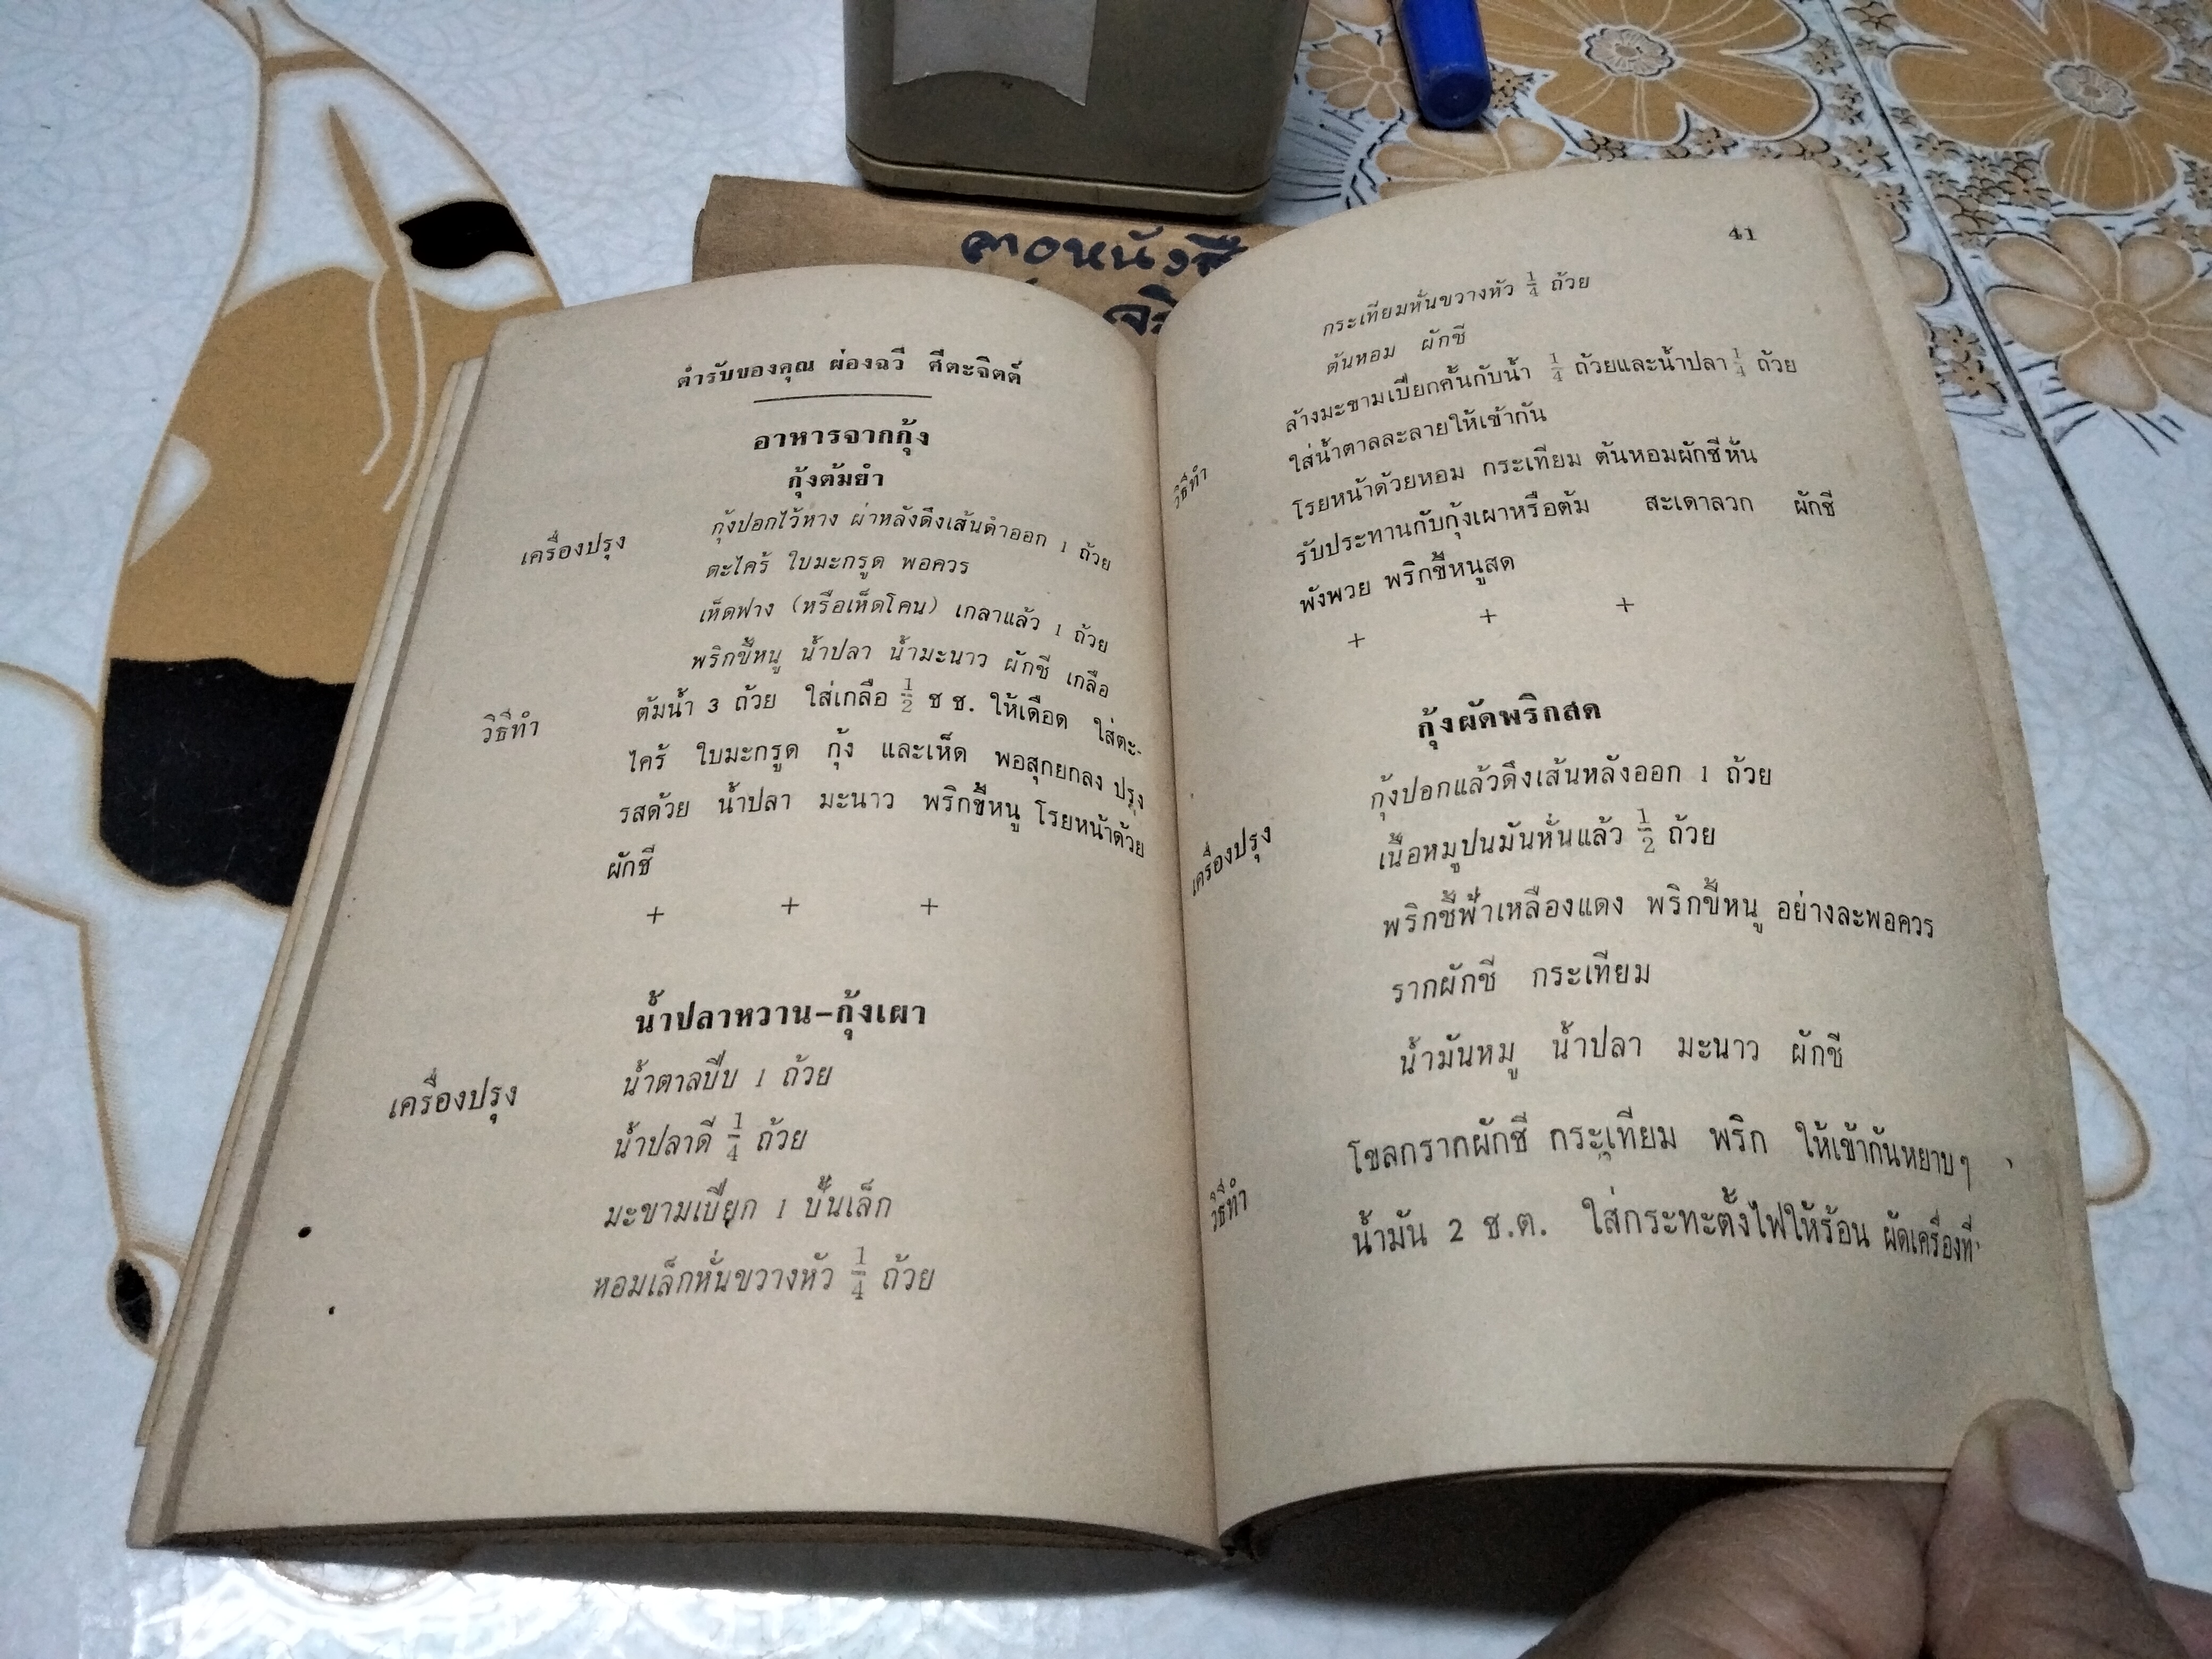 ลาอหนังสื
จิ
ตำรับของคุณ ผ่องฉวี ศีตะจิตต์
อาหารจากกุ้ง
กุ้งต้มยำ
เครื่องปรุง กุ้งปอกไว้หาง ผ่าหลังดึงเส้นดำออก 1 ถ้วย
ตะไคร้ ใบมะกรูด พอควร
เห็ดฟาง (หรือเห็ดโคน) เกลาแล้ว 1 ถ้วย
พริกขี้หนู น้ำปลา น้ำมะนาว ผักชี เกลือ
วิธีทำ ต้มน้ำ 3 ถ้วย ใส่เกลือ ½ ช ช. ให้เดือด ใส่ตะ-
ไคร้ ใบมะกรูด กุ้ง และเห็ด พอสุกยกลง ปรุง
รสด้วย น้ำปลา มะนาว พริกขี้หนู โรยหน้าด้วย
ผักชี
+ + +
น้ำปลาหวาน–กุ้งเผา
เครื่องปรุง น้ำตาลปี๊บ 1 ถ้วย
น้ำปลาดี ¼ ถ้วย
มะขามเปียก 1 ปั้นเล็ก
หอมเล็กหั่นขวางหัว ¼ ถ้วย
41
กระเทียมหั่นขวางหัว ¼ ถ้วย
ต้นหอม ผักชี
วิธีทำ ล้างมะขามเปียกคั้นกับน้ำ ¼ ถ้วยและน้ำปลา ¼ ถ้วย
ใส่น้ำตาลละลายให้เข้ากัน
โรยหน้าด้วยหอม กระเทียม ต้นหอมผักชีหั่น
รับประทานกับกุ้งเผาหรือต้ม สะเดาลวก ผักชี
พังพวย พริกขี้หนูสด
+ + +
กุ้งผัดพริกสด
เครื่องปรุง กุ้งปอกแล้วดึงเส้นหลังออก 1 ถ้วย
เนื้อหมูปนมันหั่นแล้ว ½ ถ้วย
พริกชี้ฟ้าเหลืองแดง พริกขี้หนู อย่างละพอควร
รากผักชี กระเทียม
น้ำมันหมู น้ำปลา มะนาว ผักชี
วิธีทำ โขลกรากผักชี กระเทียม พริก ให้เข้ากันหยาบๆ
น้ำมัน 2 ช.ต. ใส่กระทะตั้งไฟให้ร้อน ผัดเครื่องที่